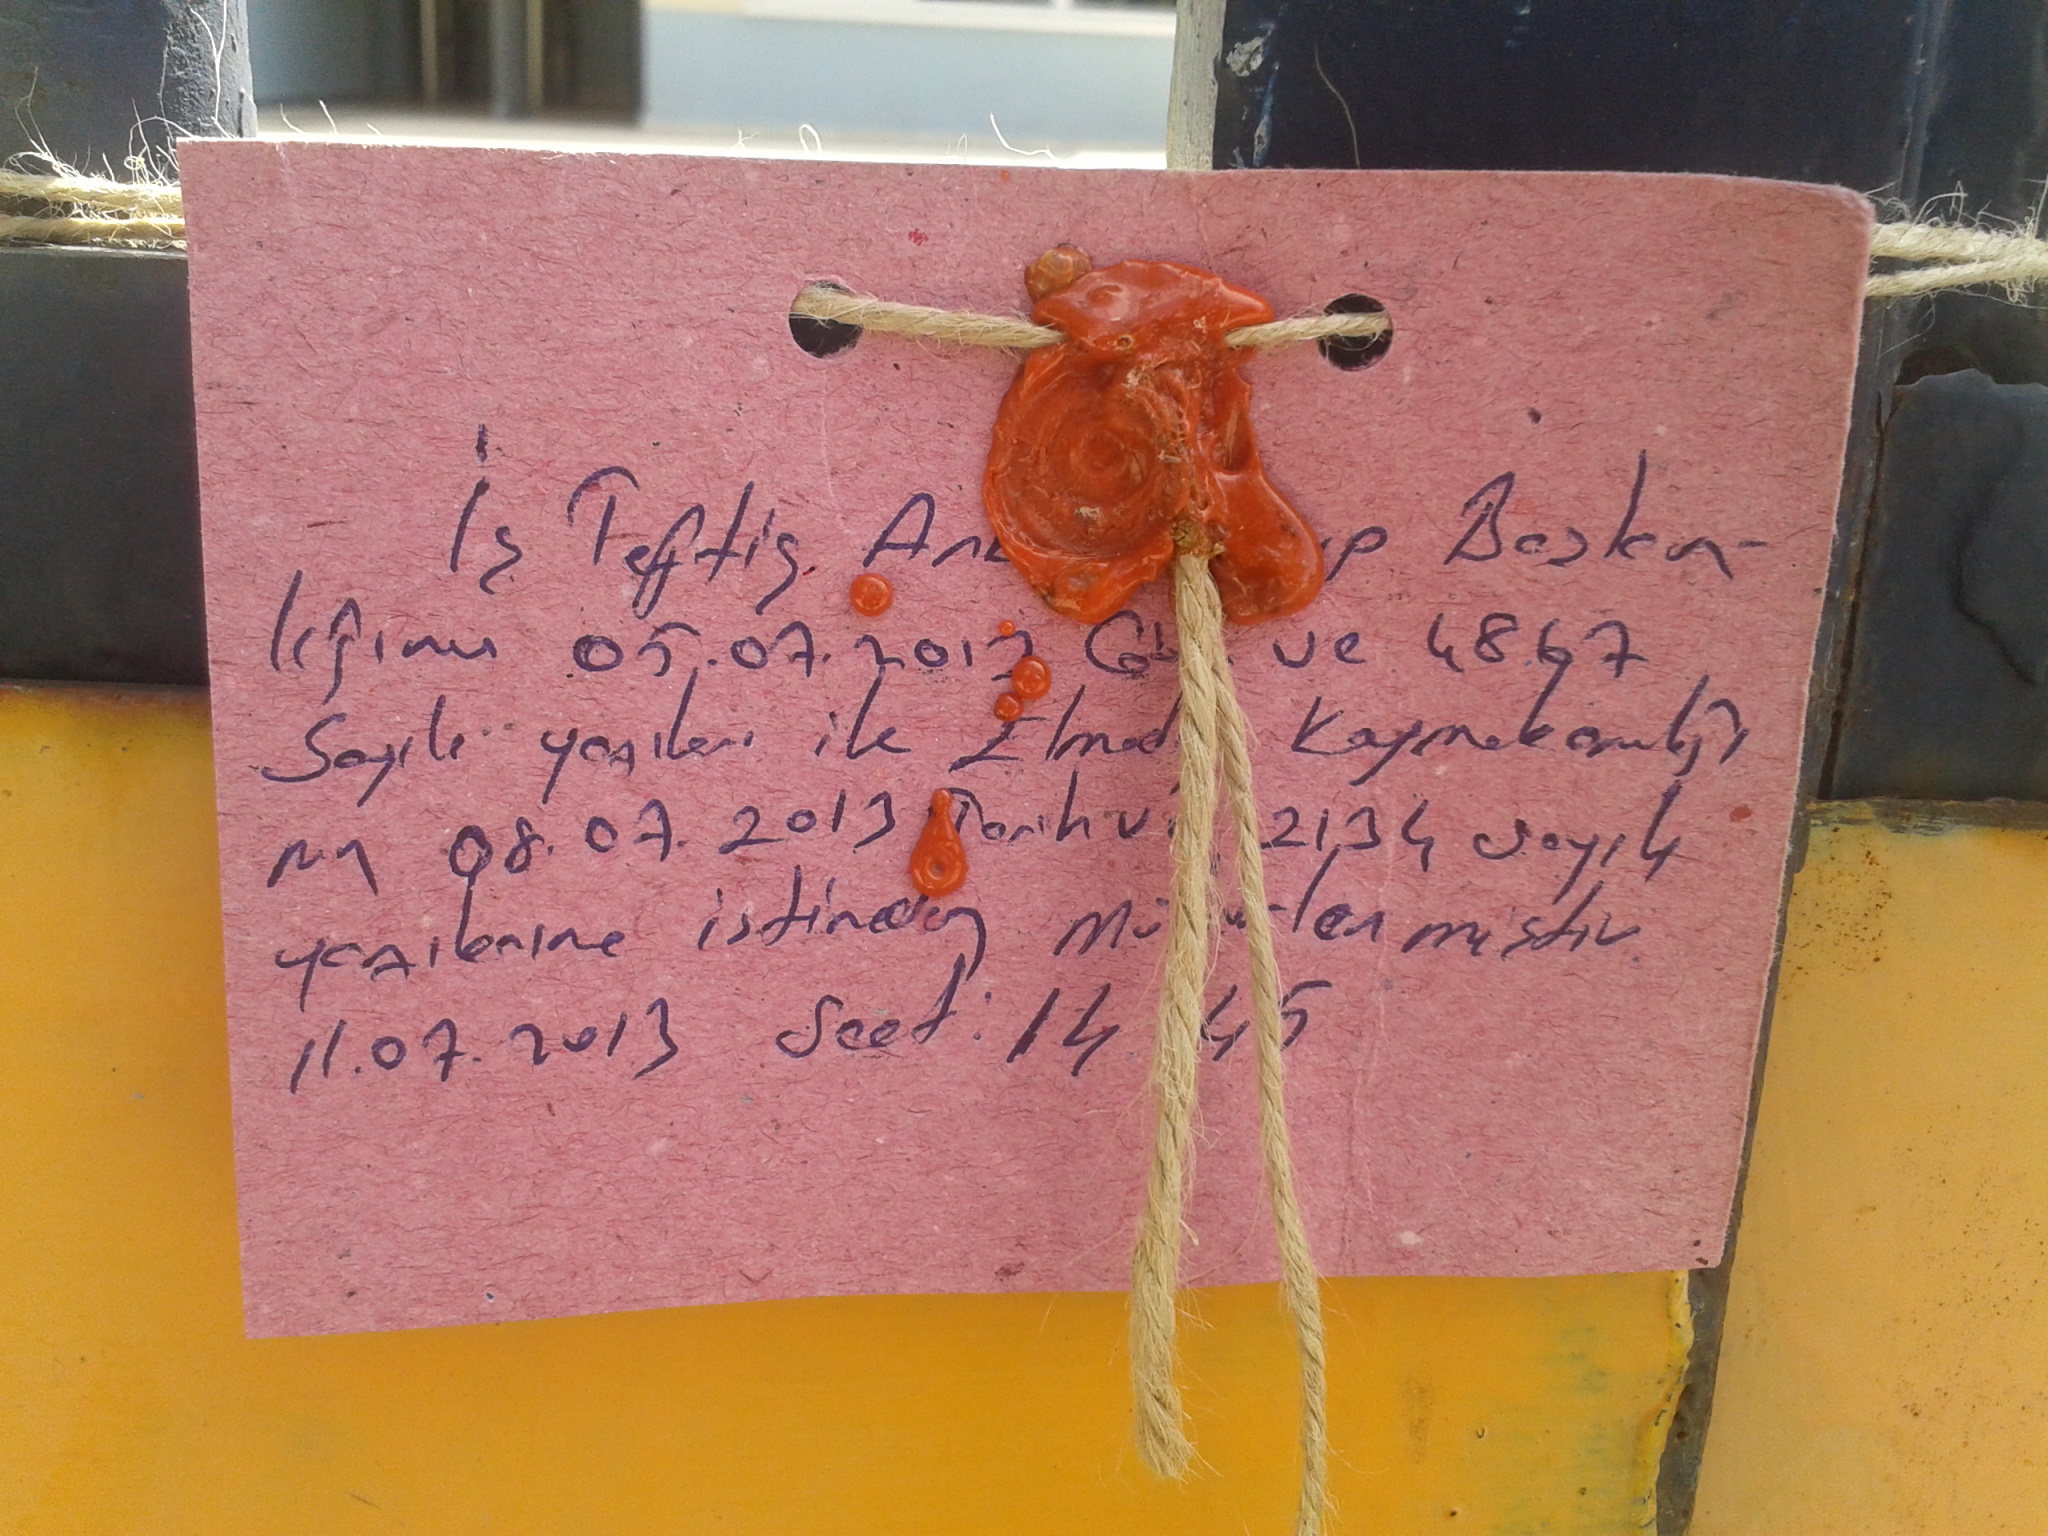 İş Teftiş Başkan-
lığının 05.07.2013 ve 4867
Sayılı yazıları ile Kaymakamlığı
nın 08.07.2013 Tarih 2134 sayılı
yazılarına istinaden
11.07.2013 Saat: 14 45